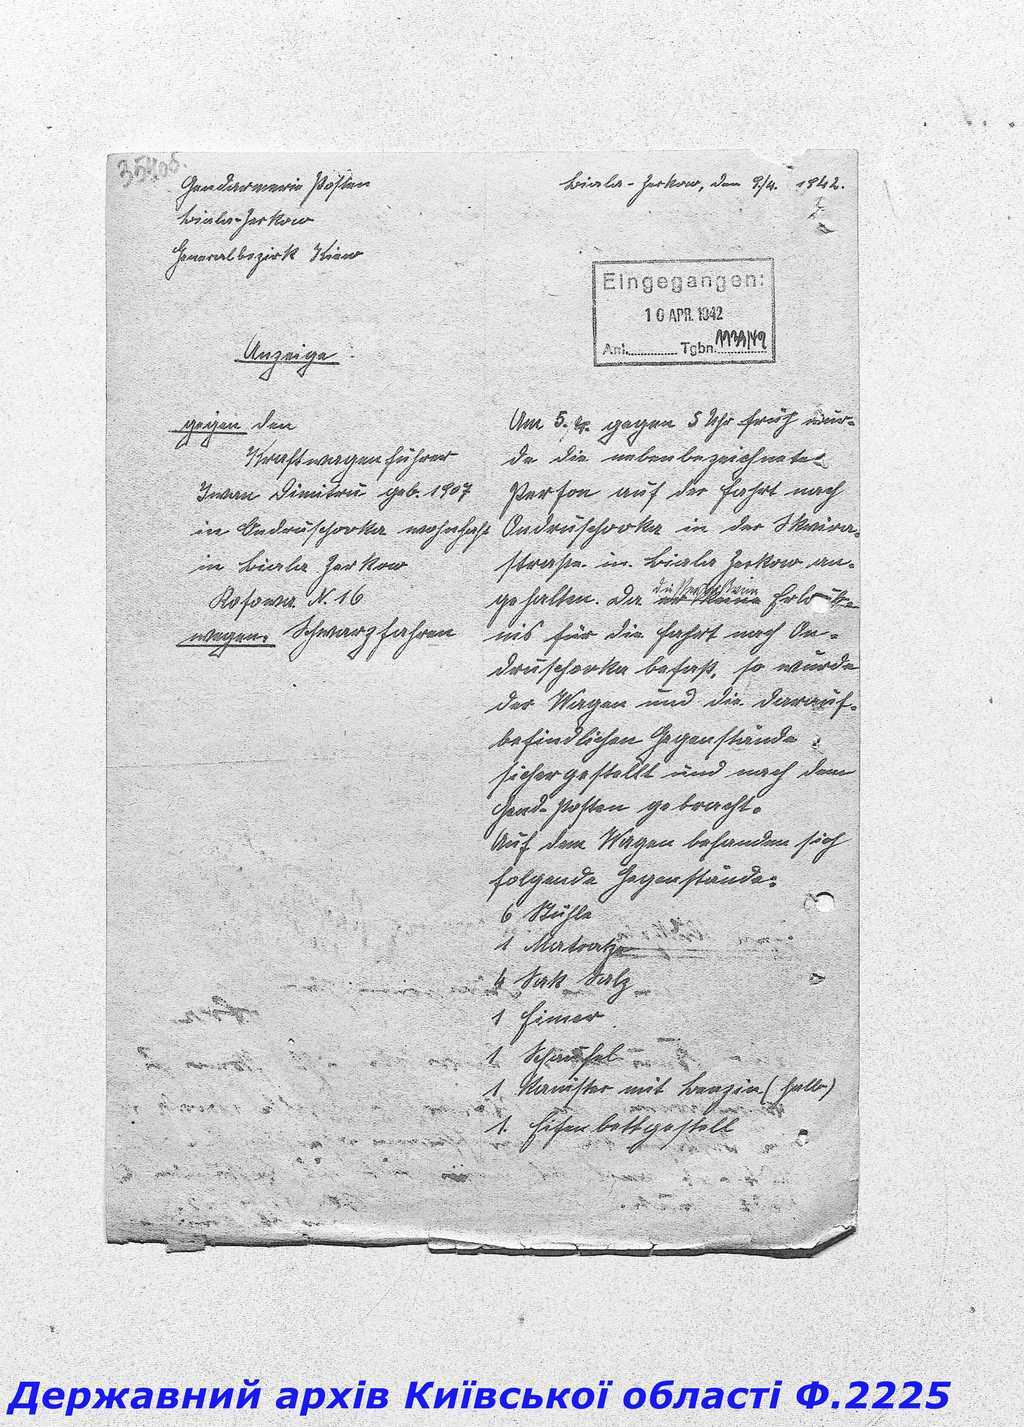 35405.
Gendarmerie Posten
Biala-Zerkow
Generalbezirk Kiew
Biala-Zerkow, den 9./4. 1942.
Eingegangen:
10 APR. 1942
Anl. Tgbn. 1139/42
Anzeige
gegen den
Kraftwagenführer
Iwan Dimitru geb. 1907
in Andruschovka wohnhaft
in Biala Zerkow
Rosowa N. 16
wegen: Schwarzfahren
Am 5./4. gegen 5 Uhr früh wur-
de die nebenbezeichnete
Person auf der Fahrt nach
Andruschovka in der Skwira-
strasse in Biala Zerkow an-
gehalten. Da er keine Erlaub-
nis für die Fahrt nach An-
druschovka besaß, so wurde
der Wagen und die darauf-
befindlichen Gegenstände
sichergestellt und nach dem
Gend-Posten gebracht.
Auf dem Wagen befanden sich
folgende Gegenstände:
6 Stühle
1 Matratze
4 Sak Salz
1 Eimer
1 Schaufel
1 Kanister mit Benzin (halb)
1. Eisenbettgestell
Державний архів Київської області Ф.2225